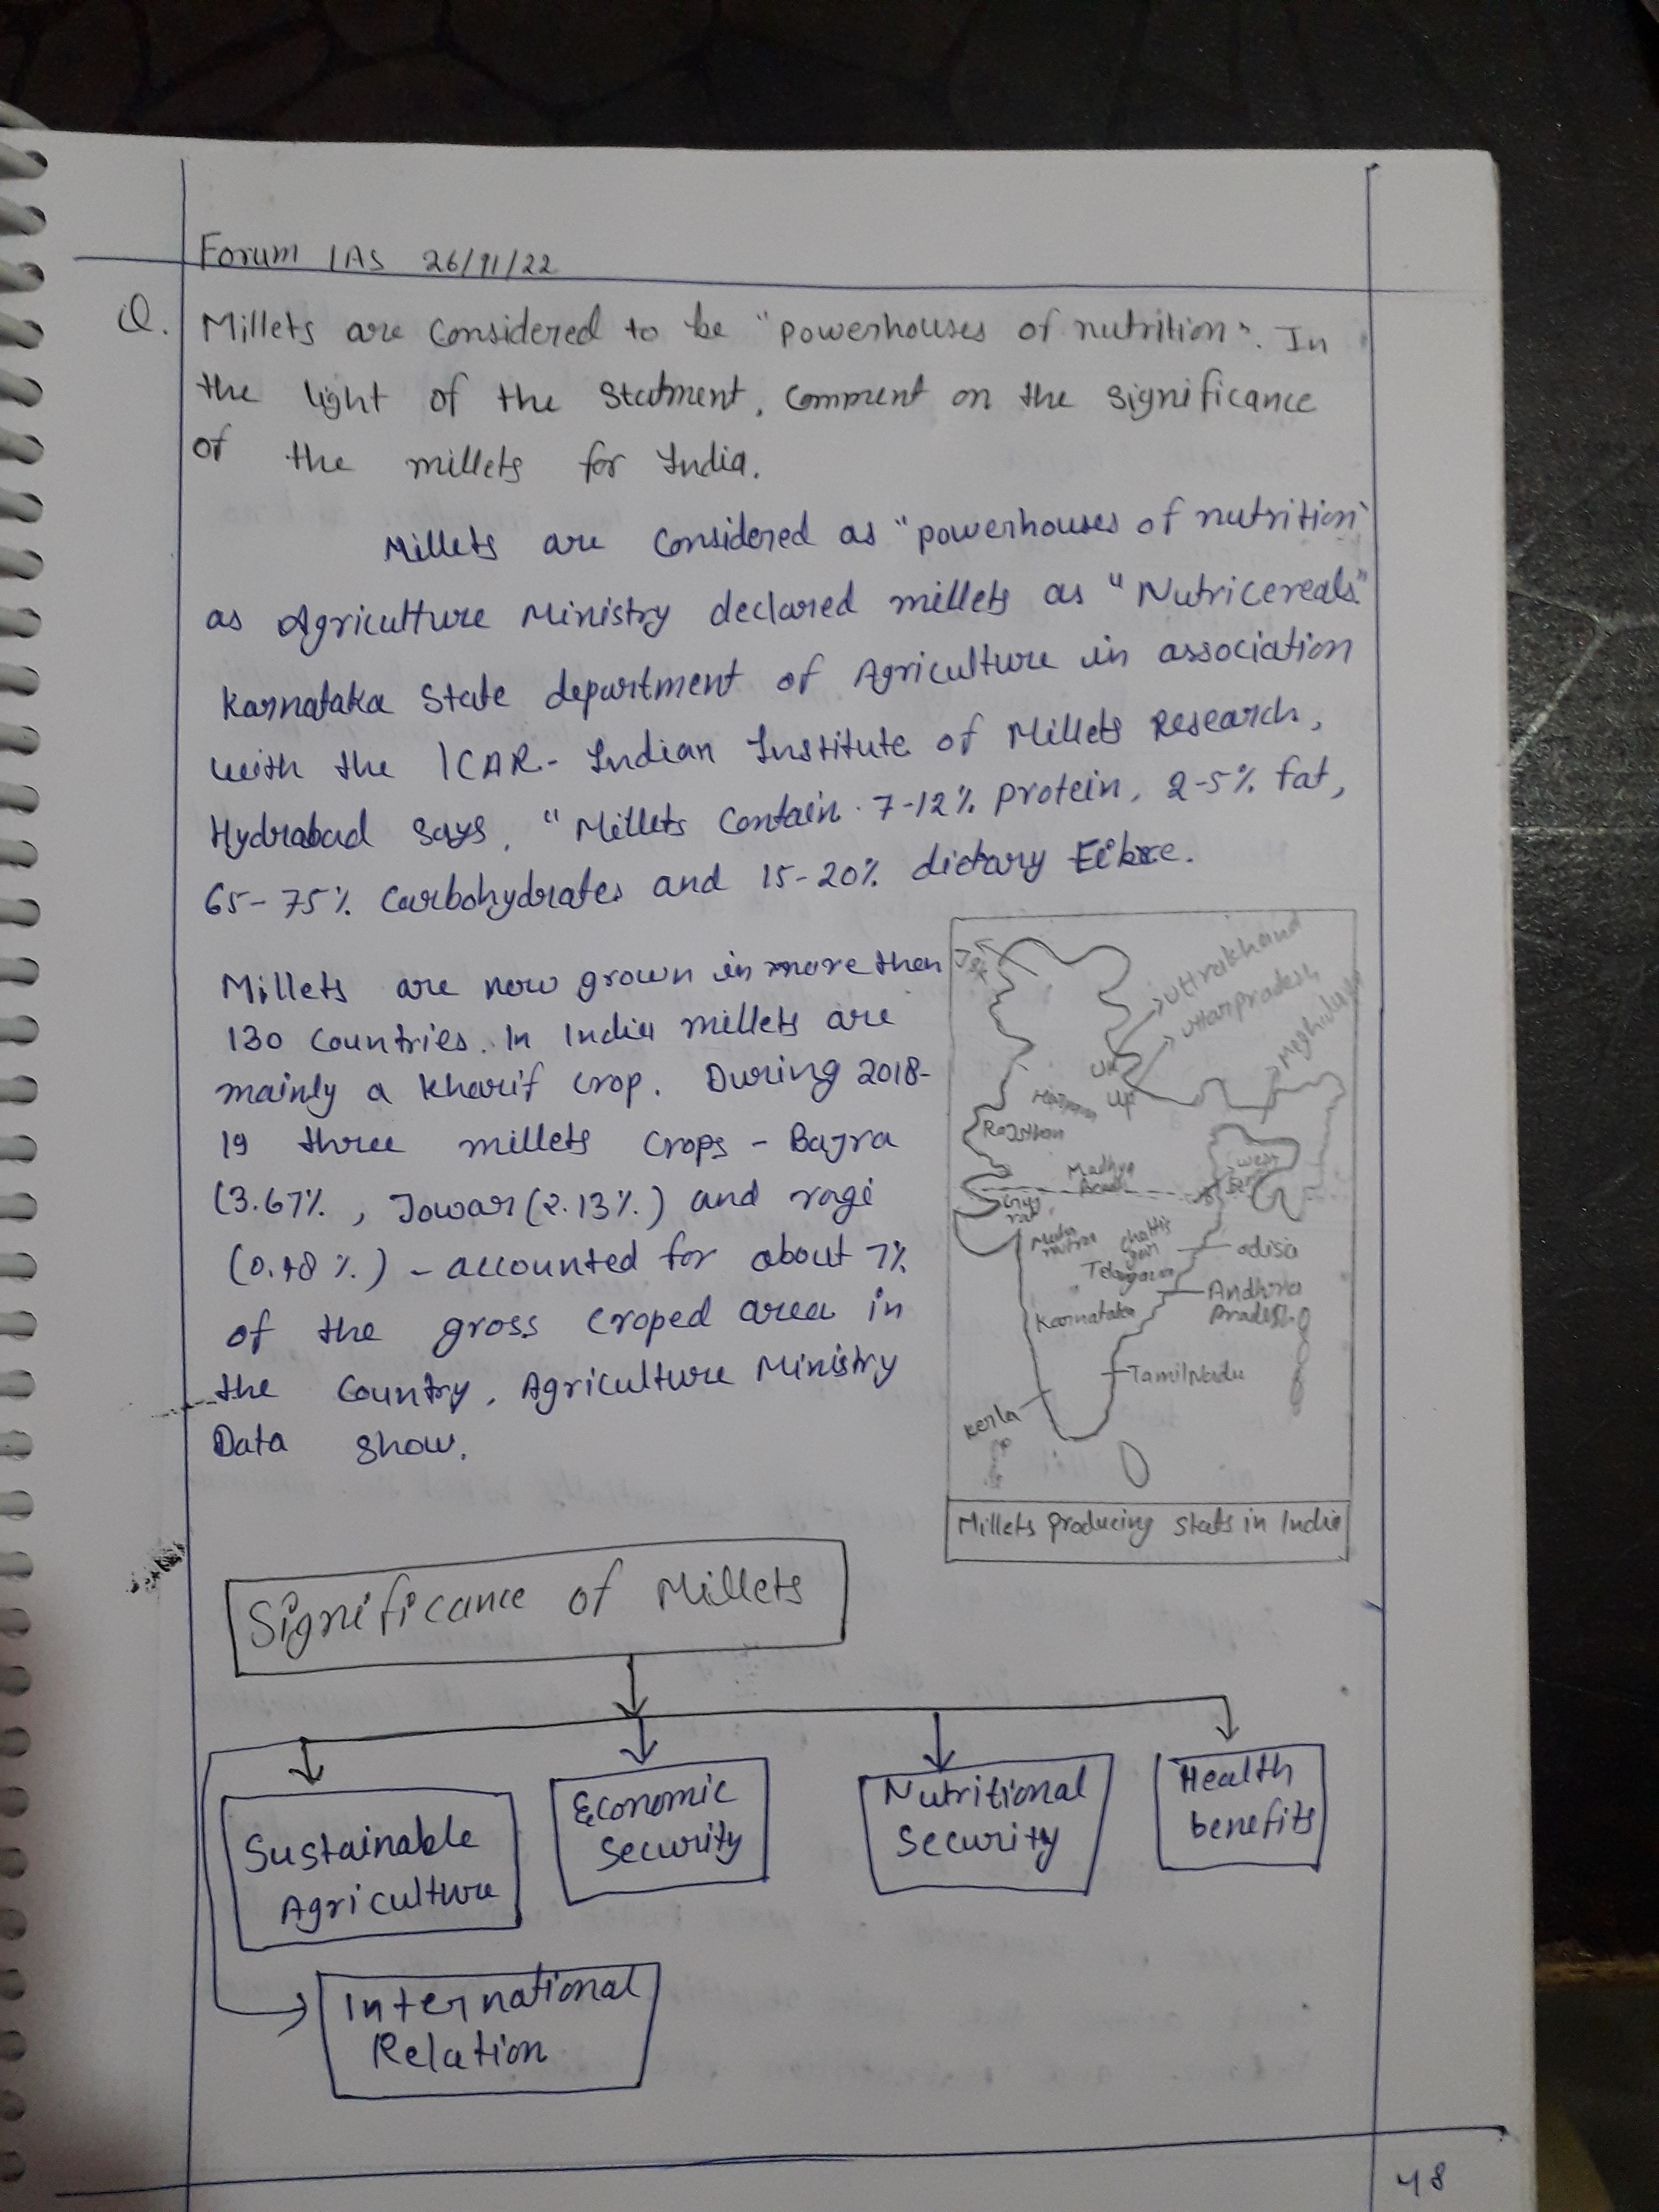 Forum IAS 26/11/22
Q. Millets are Considered to be "powerhouses of nutrition". In
the light of the Statment, Comment on the significance
of the millets for India.
Millets are Considered as "powerhouses of nutrition"
as Agriculture Ministry declared millets as "Nutricereals"
Karnataka State department of Agriculture in association
with the ICAR- Indian Institute of Millets Research,
Hydrabad says, "Millets Contain 7-12% protein, 2-5% fat,
65-75% Carbohydrates and 15-20% dietary Fibre.
Millets are now grown in more then
130 Countries. In India millets are
mainly a kharif crop. During 2018-
19 three millets Crops - Bajra
(3.67%, Jowar (2.13%) and ragi
(0.48%) - accounted for about 7%
of the gross Croped area in
the Country, Agriculture Ministry
Data show.
J&K
Uttrakhand
Uttarpradesh
Meghalaya
UK
UP
Rajsthan
Madhya
West
Guj
rat
Maha
Chattis
Telangana
odisa
Andhra
Pradesh
Karnataka
TamilNadu
Kerla
Millets producing stats in India
Significance of Millets
Sustainable
Agriculture
Economic
Security
Nutritional
Security
Health
benefits
International
Relation
48